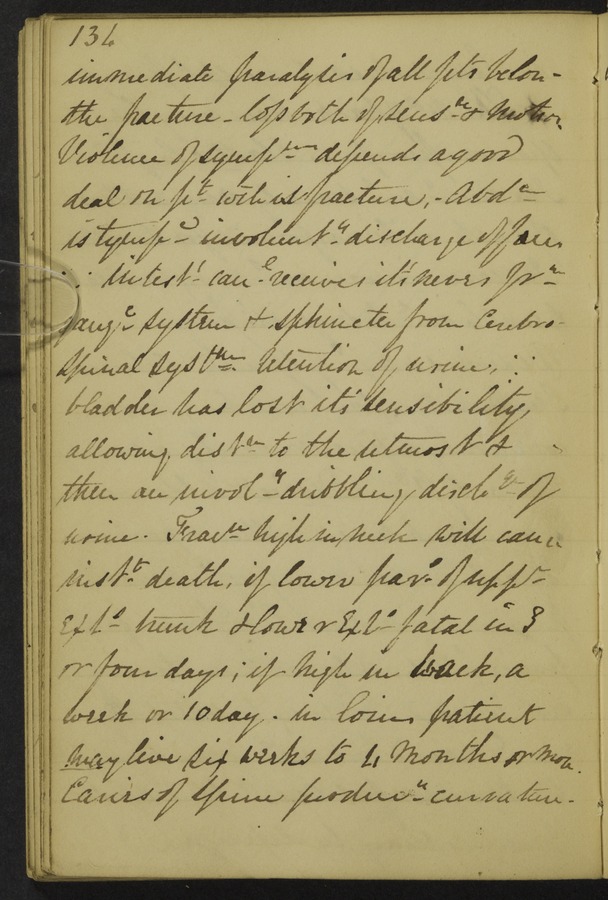 136
immediate paralysis of all pts below
the fracture - loss both of sens^n & motion
Violence of sympt^m depends a good
deal on p^t which fracture, - Abd^n
is tymp^c involunt^y discharge of faeces
∴ intest^l can^l receives it's nerves fr^m
gang^c system & sphincter from Cerebro
spinal syst^m retention of urine, ∵
bladder has lost it's sensibility,
allowing dist^n to the utmost &
then an invol^y dribbling disch^ge of
urine. Frac^re high in neck will cause
inst^t death, if lower par^s of upp^r
Ext^s trunk & lower Ext^s fatal in 3
or four days; if high in back, a
week or 10 day. in loins patient
may live six weeks to 4 months or more.
Caries of Spine produc^g curvature.